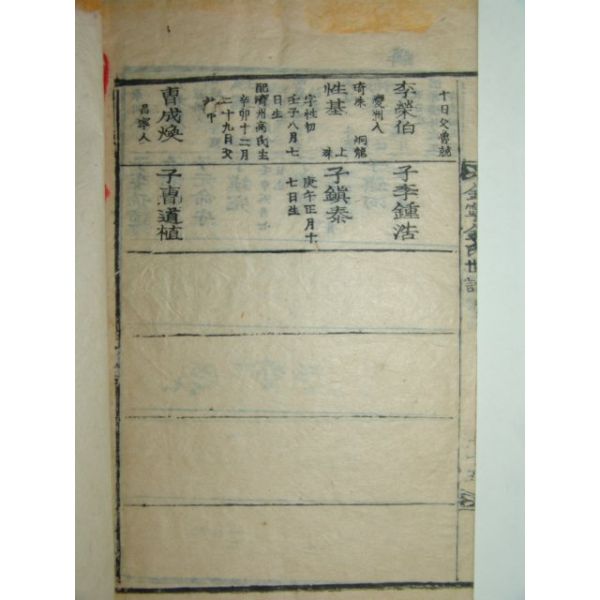 十日父曾兢
李榮伯
慶州人
子李鍾浩
性基
琦洙 炯龍
上 洙
字性初
壬子八月七
日生
配濟州高氏生
辛卯十二月
二十九日父
子鎭泰
庚午正月十
七日生
曺成煥
昌寧人
子曺道植
金寧金氏世譜